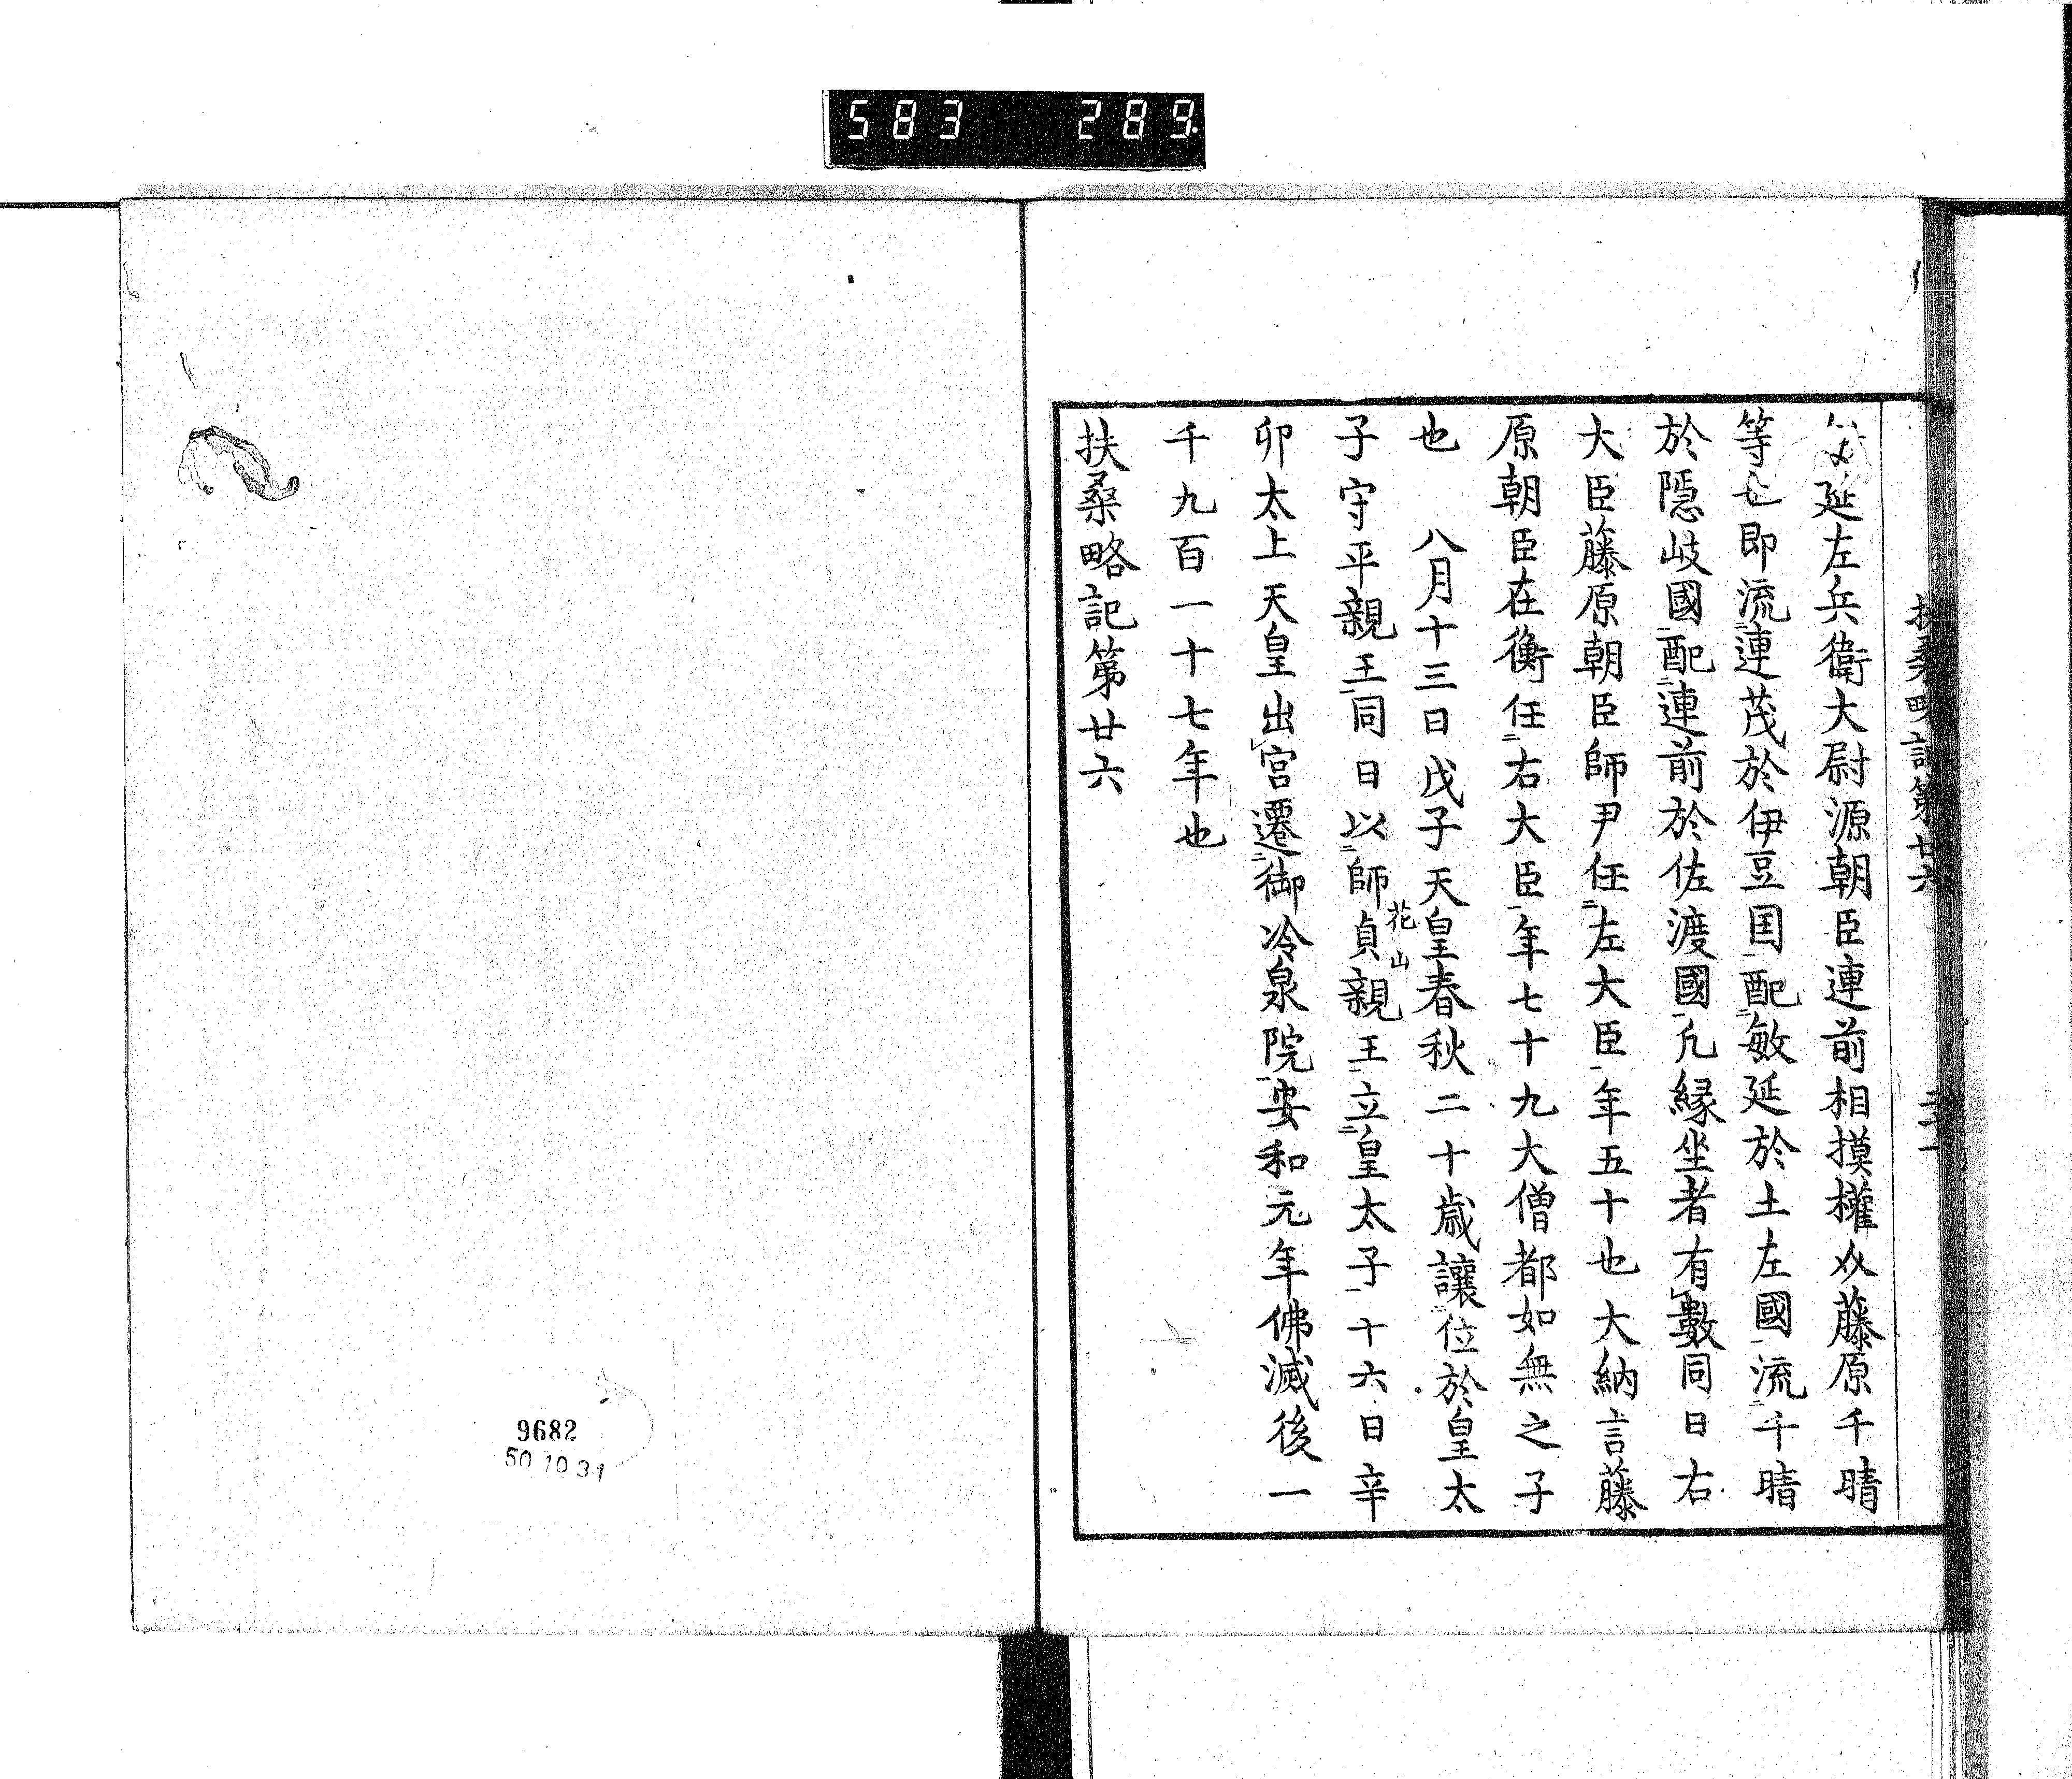 583 289
扶桑略記第廿六
延左兵衞大尉源朝臣連前相摸權介藤原千晴
等也即流連茂於伊豆国配敏延於土左國流千晴
於隱岐國配連前於佐渡國凡緣坐者有數同日右
大臣藤原朝臣師尹任左大臣年五十也大納言藤
原朝臣在衡任右大臣年七十九大僧都如無之子
也　八月十三日戊子天皇春秋二十歲讓位於皇太
花山
子守平親王同日以師貞親王立皇太子十六日辛
卯太上天皇出宮遷御冷泉院安和元年佛滅後一
千九百一十七年也
扶桑略記第廿六
9682
50 10 31